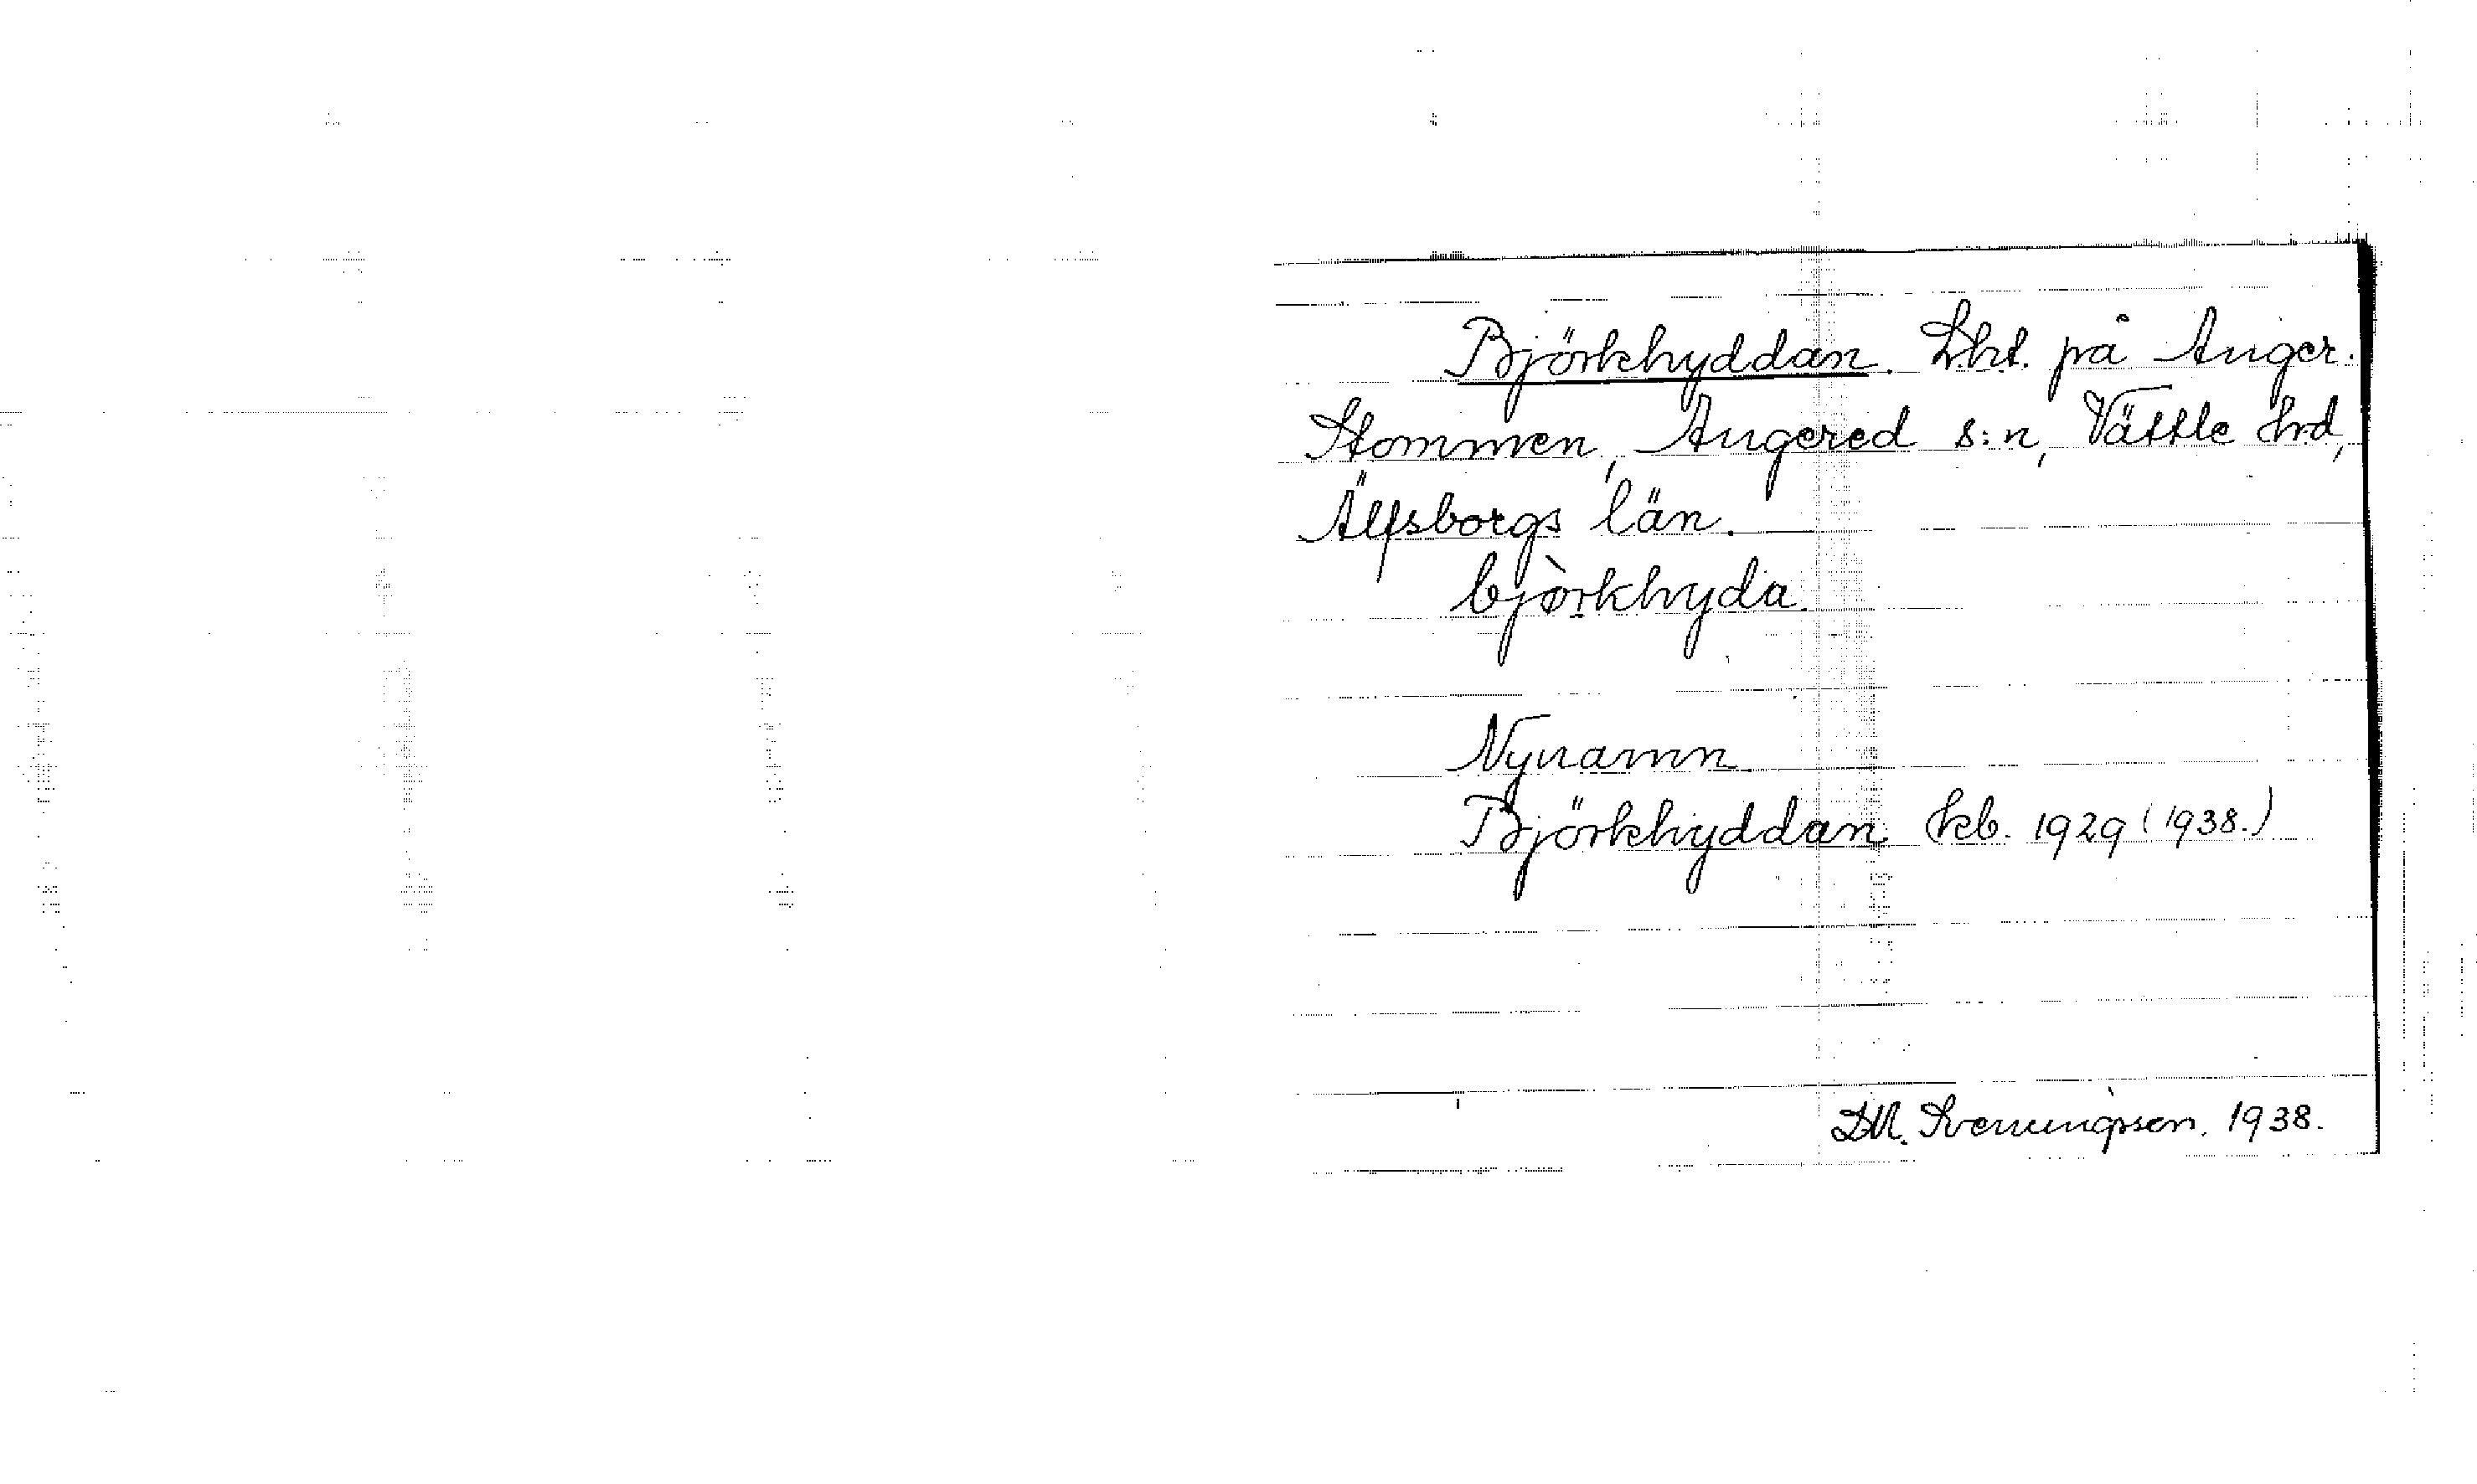 Björkhyddan. Lht. på Anger.
Stommen, Angered s:n, Vättle hrd,
Älfsborgs län.
bjòrkhyda.
Nynamn.
Björkhyddan. kb. 1929 (1938.)
1938.